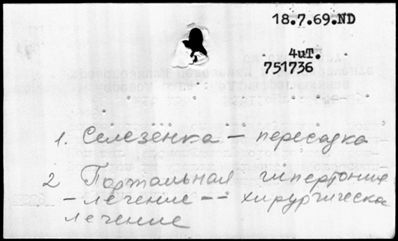 18.7.69.ND
4uT.
751736
1. Селезёнка — пересадка
2 Портальная гипертония
— лечение -- хирургическа
лечение